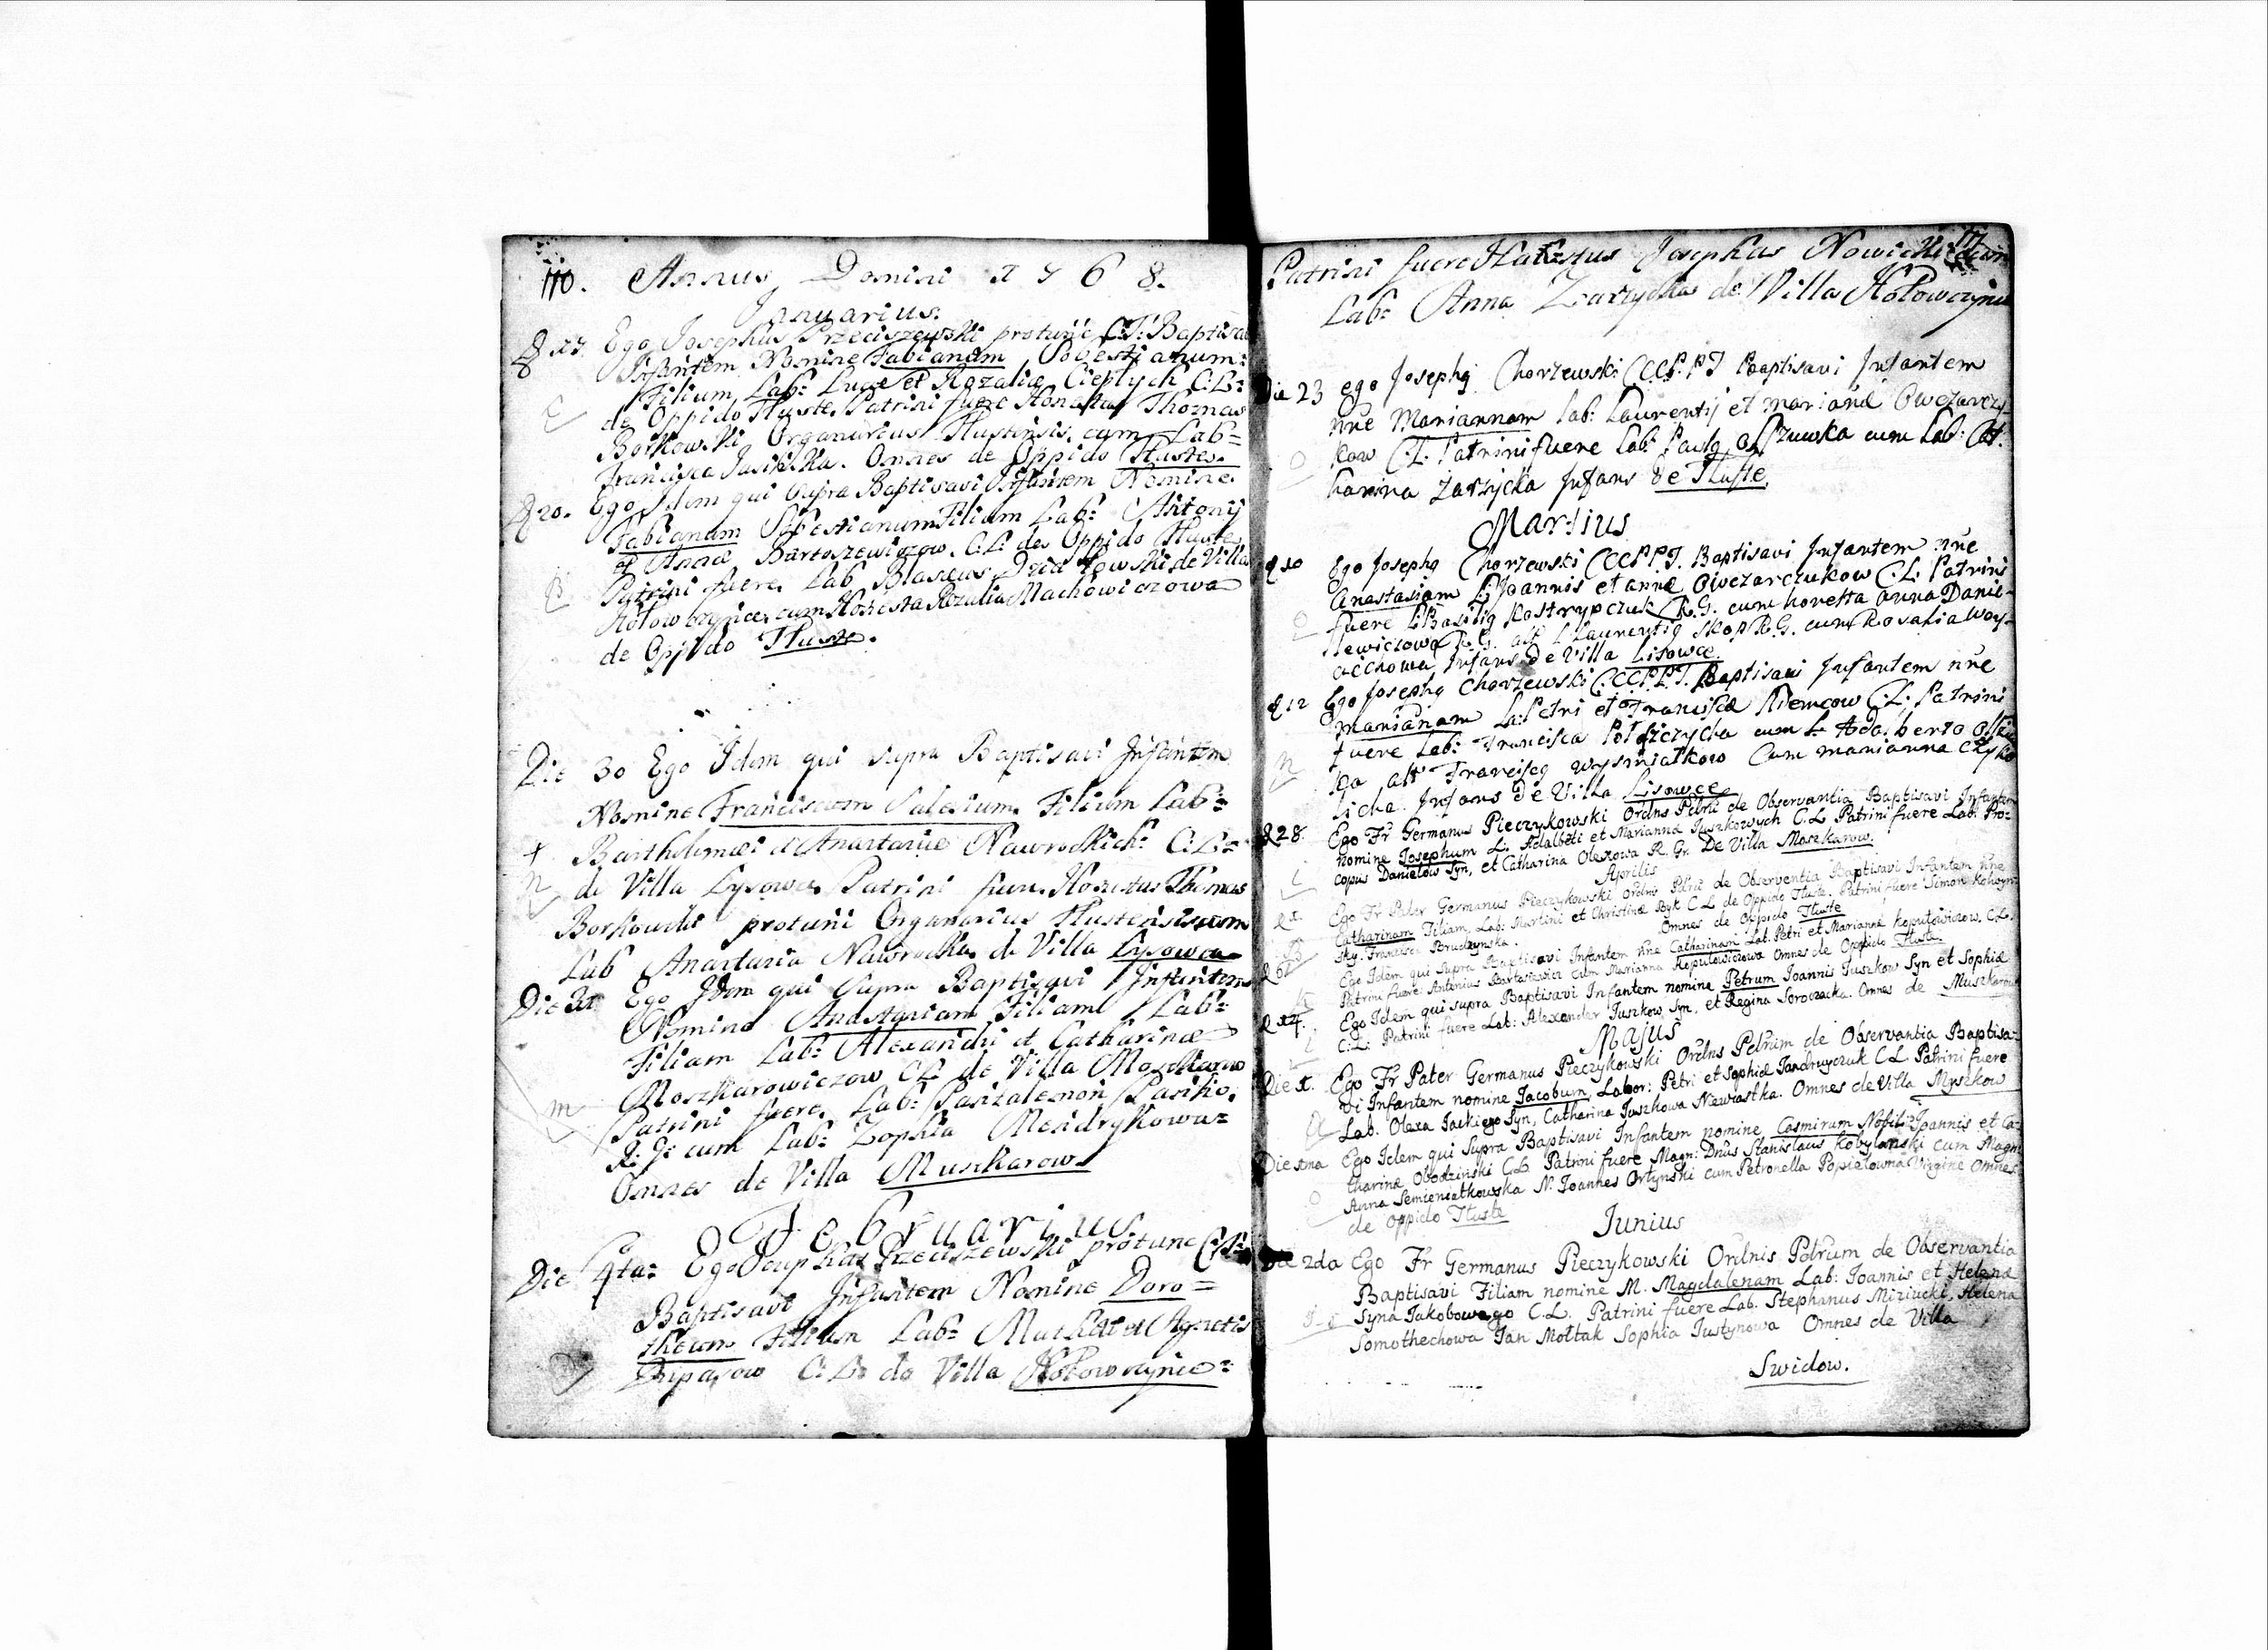 110. Annus Domini 1768.
Januarius.
Ego Josephus Przeciszewski protunc C.T. Baptisavi
Infantem Nomine Fabianum Sobestianum:
Filium Lab: Lucæ et Rozaliæ Ciepłych C:L:
de Oppido Tłuste. Patrini fuere Honestus Thomas
Borkowski Organarius Tlustensis, cum Lab=
Francisca Omnes de Oppido Tłuste.
d 20. Ego Idem qui Supra Baptisavi Infantem Nomine
Fabianum Filium Lab: Antonij
et Annæ Bartoszewiczow. C:L: de Oppido Tłuste
Patrini fuere Lab Blasius de Villa
cum Honesta Rozalia Machowiczowa
de Oppido Tłuste.
Die 30 Ego Idem qui supra Baptisavi Infantem
Nomine Franciscum Salesium Filium Lab:
Bartholomæi et Anastasiæ Nawrockich C:L:
de Villa Lysowce Patrini fuere Honestus Thomas
Borkowski protunc Organarius Tlustensis cum
Lab Anastasia Nawrocka de Villa Lysowce
Die 31 Ego Idem qui Supra Baptisavi Infantem
Nomine Anastasiam Filiam Lab:
Filiam Lab: Alexandri et Catharinæ
Moszkarowiczow CL de Villa Moszkarow
Patrini fuere Lab: Pantalemon Pasiko
R: G: cum Lab: Zophia Mendrykowa=
Omnes de Villa Muszkarow
Februarius
Die 4ta: Ego Josephus Przeciszewski protunc
Baptisavi Infantem Nomine Doro=
theam Filiam Lab: Mathæi et Agnetis
C:L: de Villa Hołowczynce:
Patrini fuere Honestus Josephus Nowicki cum
Lab: Anna Zarzycka de Villa Hołowczynce
Die 23 ego Josephq Chorzewski CCCP.PT Baptisavi Infantem
nne Mariannam lab: Laurentij et marianæ Owczarczu-
kow C.L. Patrini fuere lab. Paulq cum Lab: Cat-
harina Zarzycka Infans de Tłuste.
Martius
d 10 Ego Josephq Chorzewski CCCP.P.T. Baptisavi Infantem nne
Anastasiam L: Joannis et annæ Owczarczukow C.L. Patrini
fuere L: Basiliq Kostrypczuk R.G. cum honesta anna Danie-
lewiczowa R.G. alt L Laurentiq Skop R.G. cum Rosalia Woy-
ciechowa Infans De Villa Lisowce.
d 12 Ego Josephq Chorzewski CCCP.P.T. Baptisavi Infantem nne
marianam La: Petri et Franciscæ Niemcow C.L. Patrini
fuere Lab: Francisca cum L. Adalberto
ka alt Franciscq Wysmiatkow Cum marianna
licha. Infans De Villa Lisowce
d 28. Ego Fr Germanus Pieczykowski Ordns Pdrum de Observantia Baptisavi Infantem
nomine Josephum L: Adalberti et Mariannæ Juszkowych C.L. Patrini fuere Lab: Pro-
copus Danielow Syn, et Catharina Olexowa R. Gr. De Villa Moszkarow.
Aprilis
d 1. Ego Fr Pater Germanus Pieczykowski Ordns Pdrum de Observantia Baptisavi Infantem nne
Catharinam Filiam, Lab: Martini et Christinæ Byk C.L de Oppido Tłuste. Patrini fuere Simon
sky. Francisca Omnes de Oppido Tłuste
d 6 Ego Idem qui Supra Baptisavi Infantem nne Catharinam Lab: Petri et Mariannæ Koputowiczow. C.L.
Patrini fuere: Antonius Bartosiewicz cum Marianna Koputowiczowa Omnes de Oppido Tłuste
d 14. Ego Idem qui supra Baptisavi Infantem nomine Petrum Joannis Juszkow Syn et Sophiæ
C.L. Patrini fuere Lab: Alexander Juszkow Syn, et Regina Soroczacka. Omnes de Muszkarow
Majus
Die 1. Ego Fr Pater Germanus Pieczykowski Ordns Pdrum de Observantia Baptisa-
vi Infantem nomine Jacobum, Labor: Petri et Sophiæ Jandruyczuk C.L Patrini fuere
Lab. Olexa Jackiego Syn, Catharina Juszkowa Niewiastka. Omnes de Villa Myszkow
Die Ego Idem qui Supra Baptisavi Infantem nomine Casmirum Nobil: Joannis et Ca-
tharinæ Obodzinski C.L. Patrini fuere Magn: Dnus Stanislaus Kobylanski cum Magn
Anna Semieniatkowska N. Joannes Ortynski cum Petronella Popielowna Virgine Omnes
de Oppido Tłuste
Junius
Die 2da Ego Fr Germanus Pieczykowski Ordnis Pdrum de Observantia
Baptisavi Filiam nomine M. Magdalenam Lab: Joannis et Helenæ
Syna Jakobowego C.L. Patrini fuere Lab. Stephanus Miziucki, Helena
Somothechowa Jan Mołtak Sophia Justynowa Omnes de Villa
Swidow.